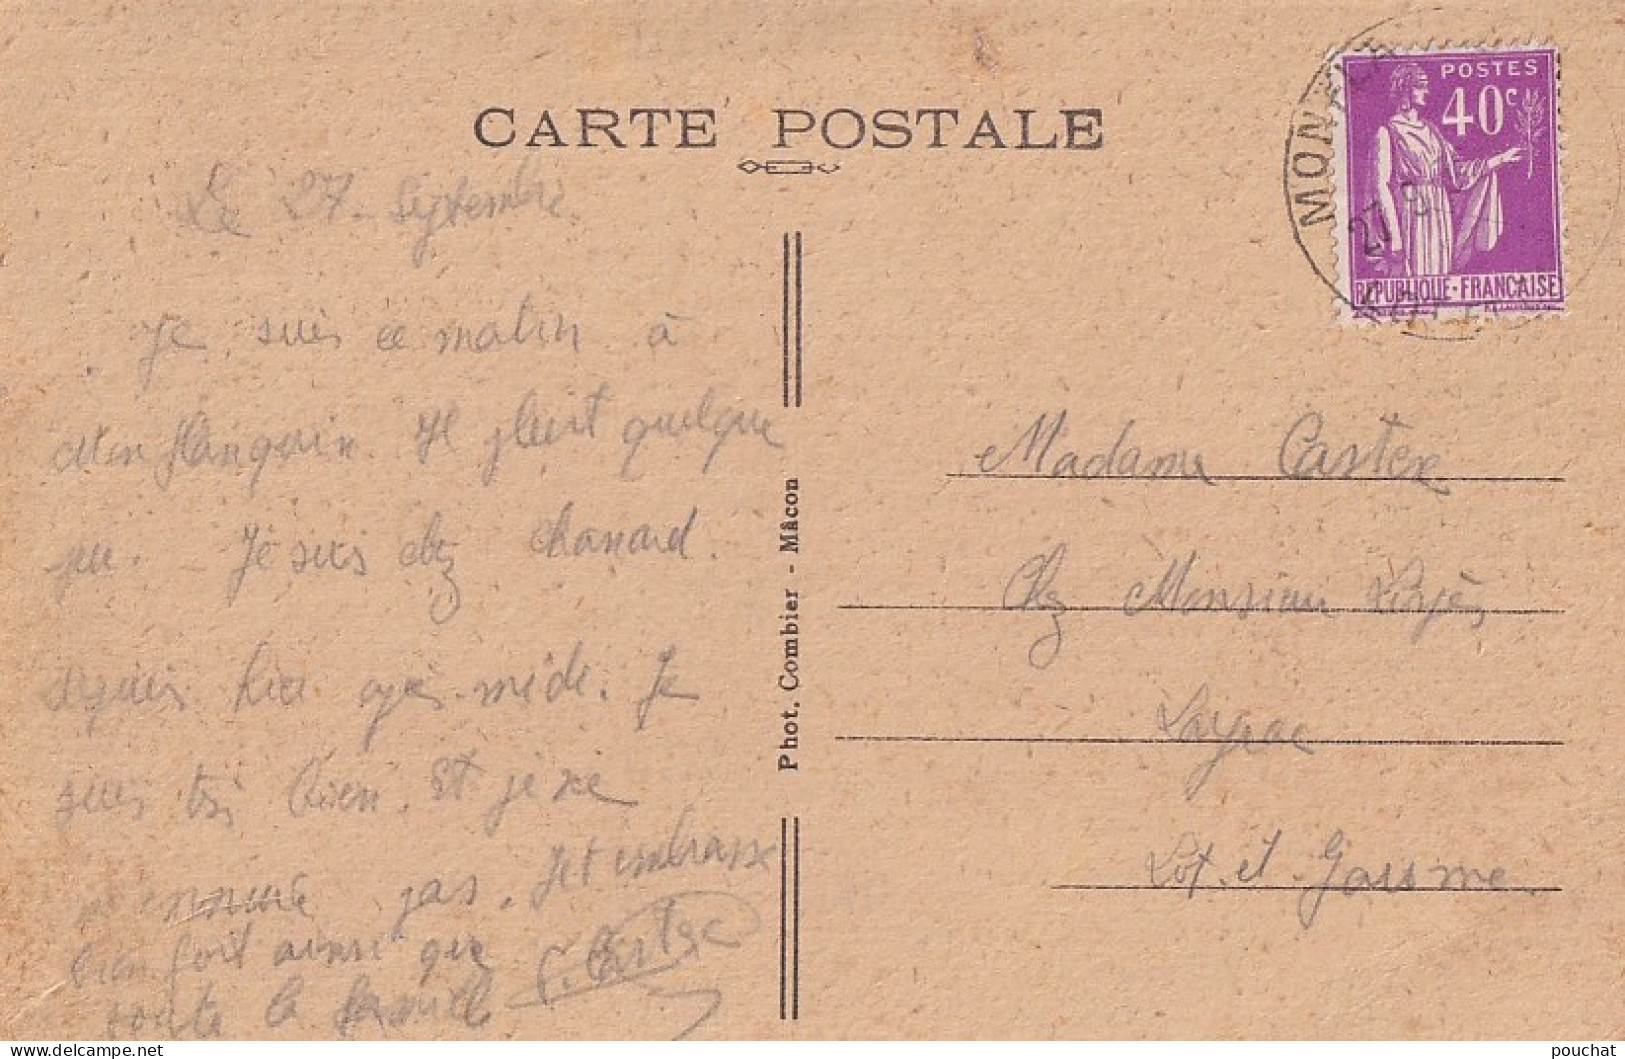 CARTE POSTALE
Le 27 Septembre
Je suis ce matin à
Monflanquin. Il pleut quelque
peu. Je suis chez
depuis hier après-midi. Je
suis très bien. Et je ne
m'ennuie pas. Je t'embrasse
bien fort ainsi que
toute la famille
Phot. Combier - Mâcon
POSTES
40c
REPUBLIQUE·FRANÇAISE
27 9
Madame Castex
Chez Monsieur
Layrac
Lot-et-Garonne
pouchat